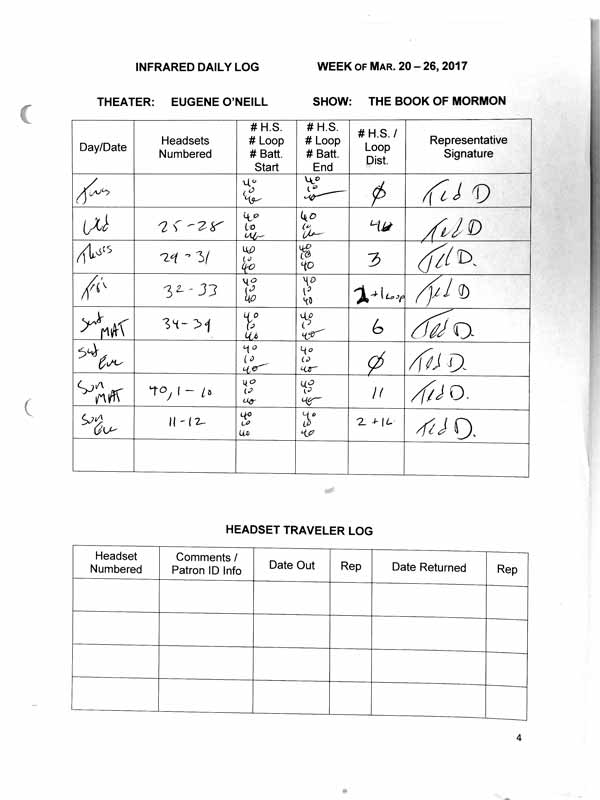 INFRARED DAILY LOG WEEK OF MAR. 20 – 26, 2017
THEATER: EUGENE O'NEILL SHOW: THE BOOK OF MORMON
Day/Date Headsets Numbered # H.S. # Loop # Batt. Start # H.S. # Loop # Batt. End # H.S. / Loop Dist. Representative Signature
Tues 40 10 40 40 10 40 Ø Ted D
Wed 25-28 40 10 40 40 10 40 4 Ted D
Thurs 29-31 40 10 40 40 10 40 3 Ted D.
Fri 32-33 40 10 40 40 10 40 2+1 Loop Ted D
Sat MAT 34-39 40 10 40 40 10 40 6 Ted D.
Sat Eve 40 10 40 40 10 40 Ø Ted D.
Sun MAT 40, 1-10 40 10 40 40 10 40 11 Ted D.
Sun Eve 11-12 40 10 40 40 10 40 2+1L Ted D.
HEADSET TRAVELER LOG
Headset Numbered Comments / Patron ID Info Date Out Rep Date Returned Rep
4